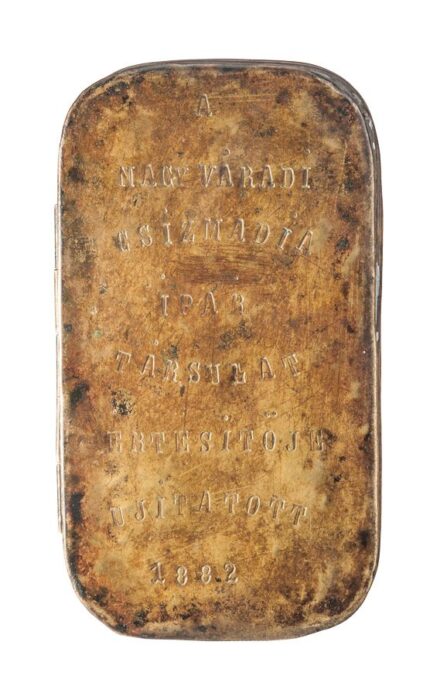 A
NAGY VÁRADI
CSÍZMADIA
IPÁR
TÁRSULAT
ERTESÍTÖJE
UJITATOTT
1882